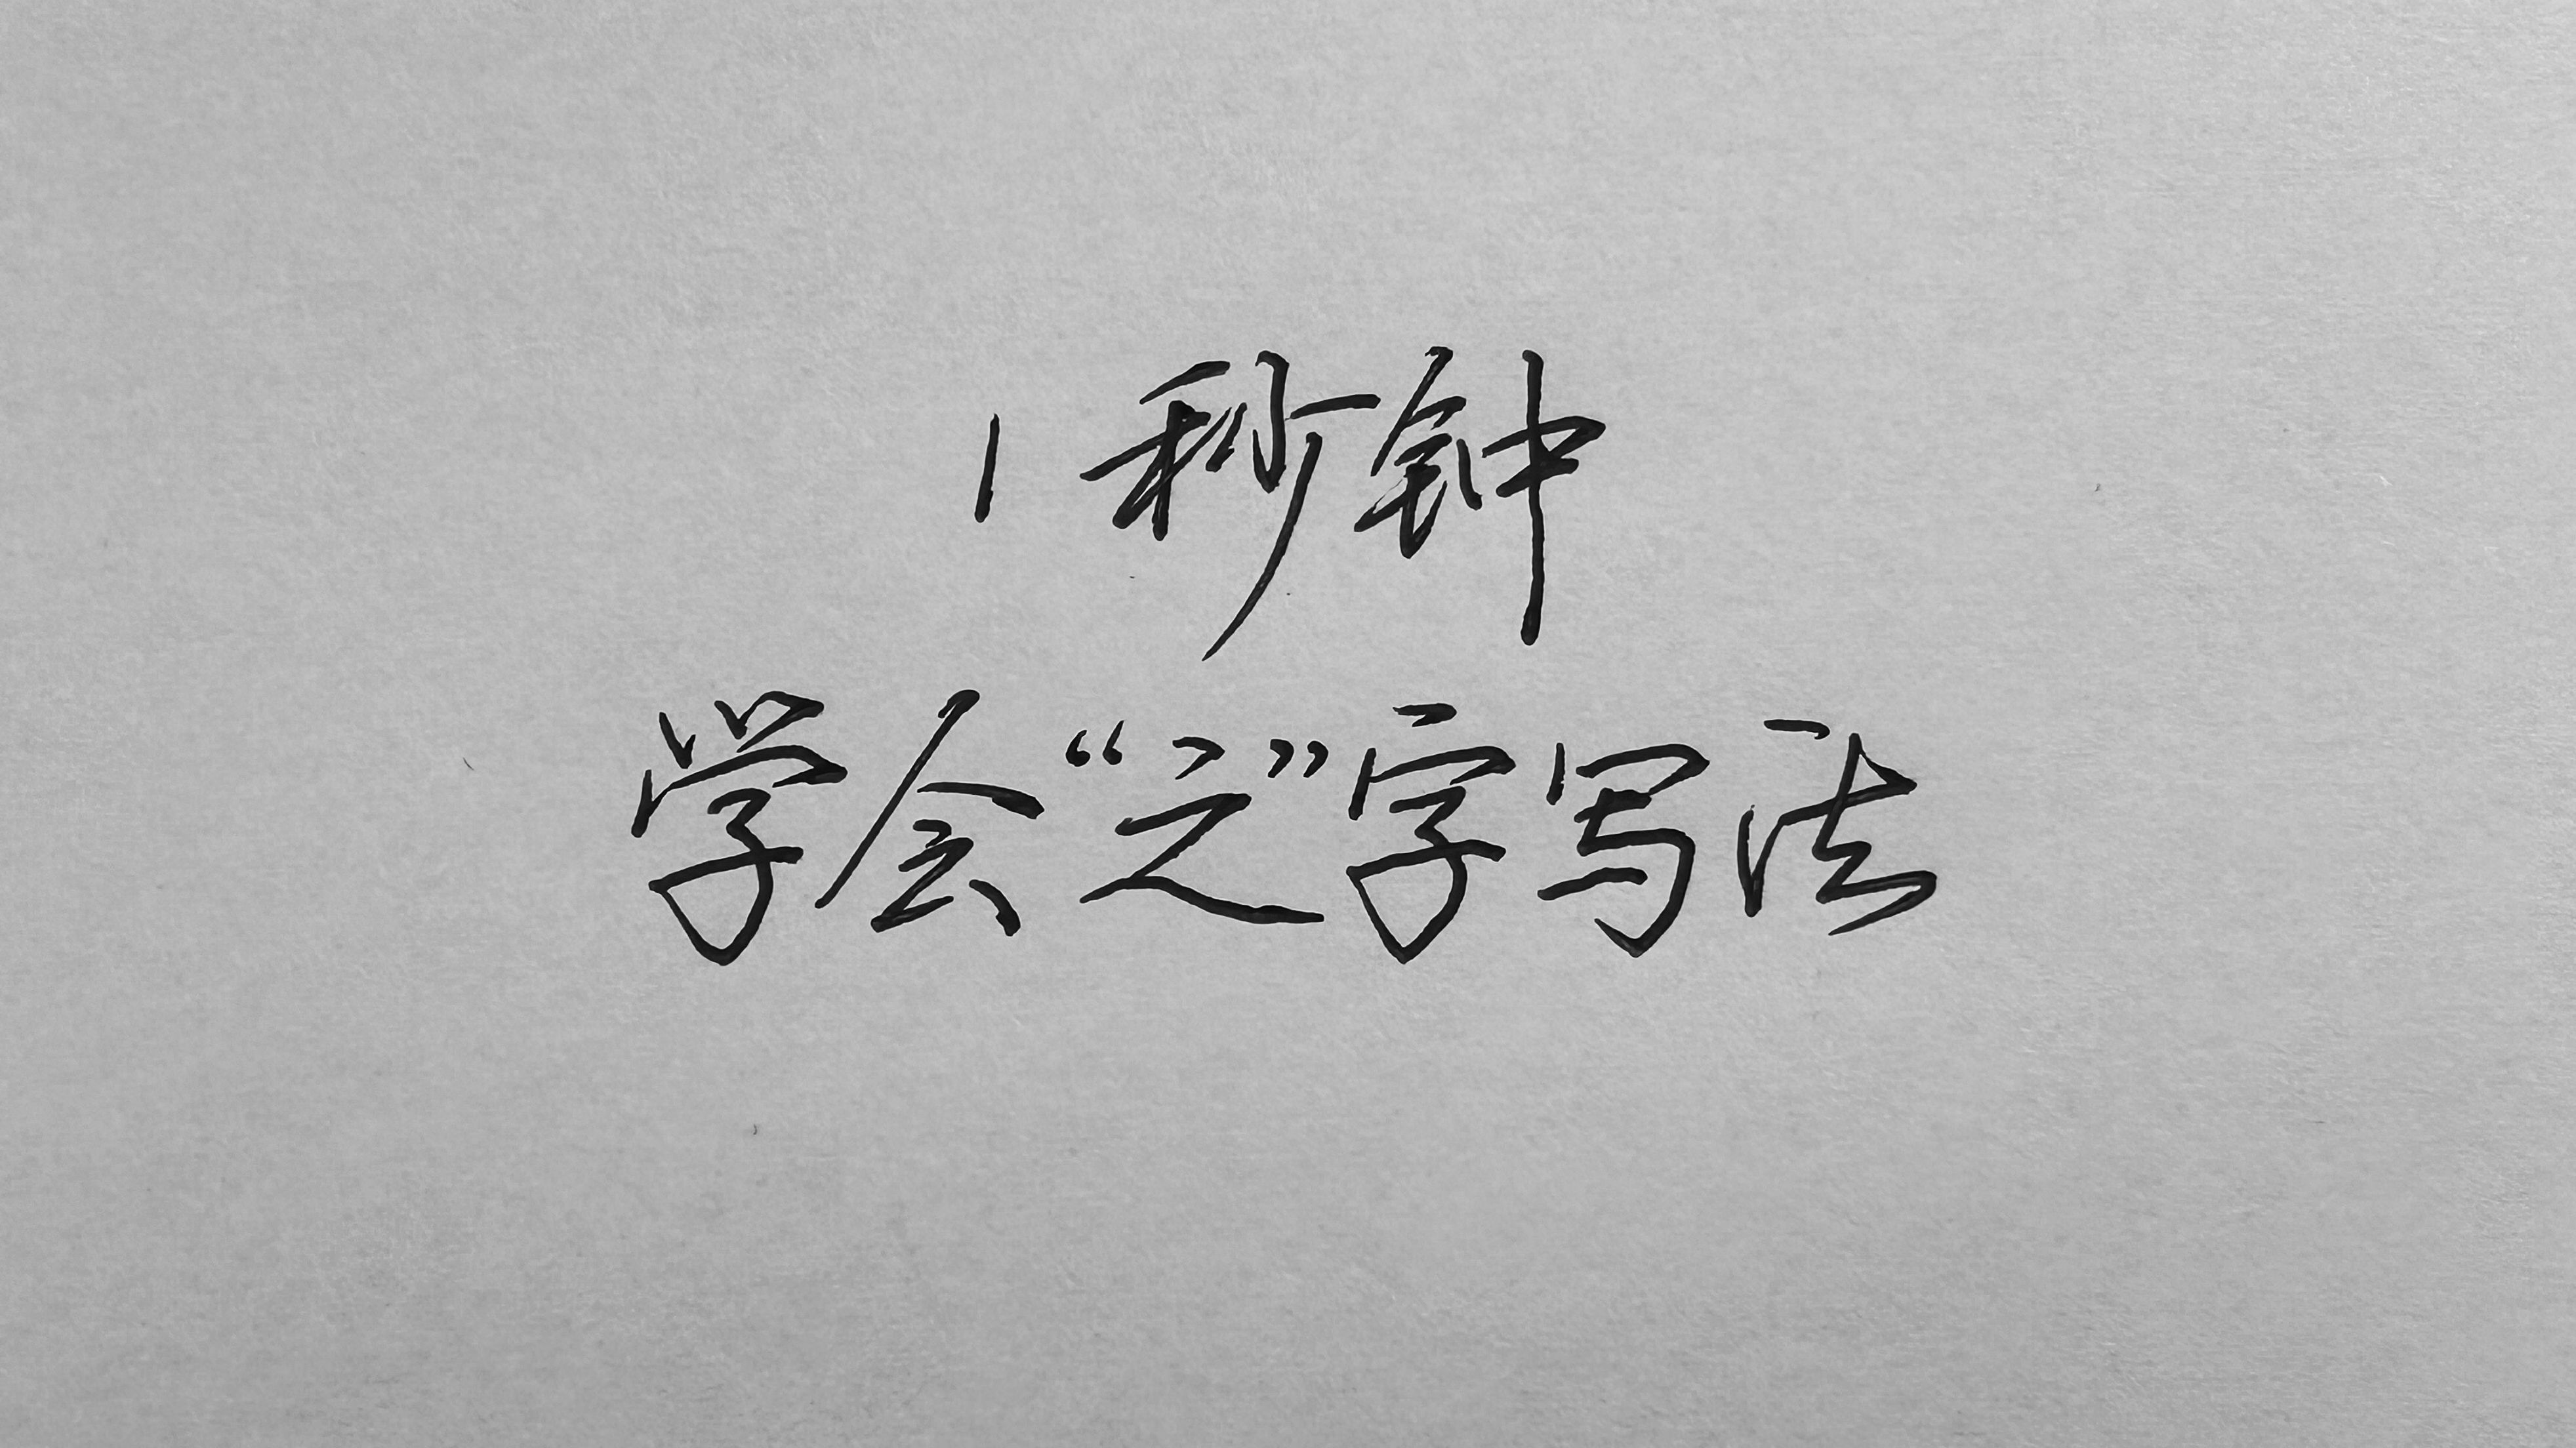 1秒钟
学会“之”字写法